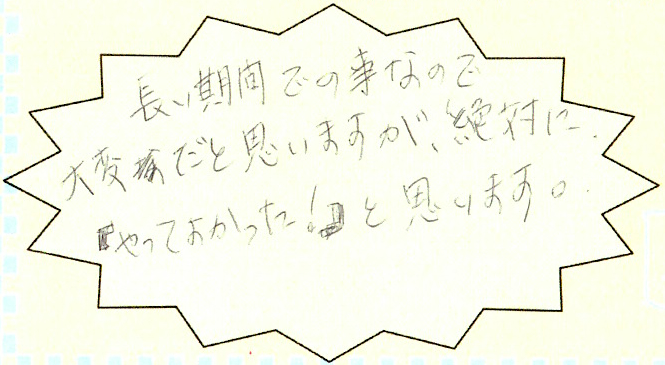 長い期間での事なので
大変だと思いますが、絶対に、
『やってよかった!』と思います。